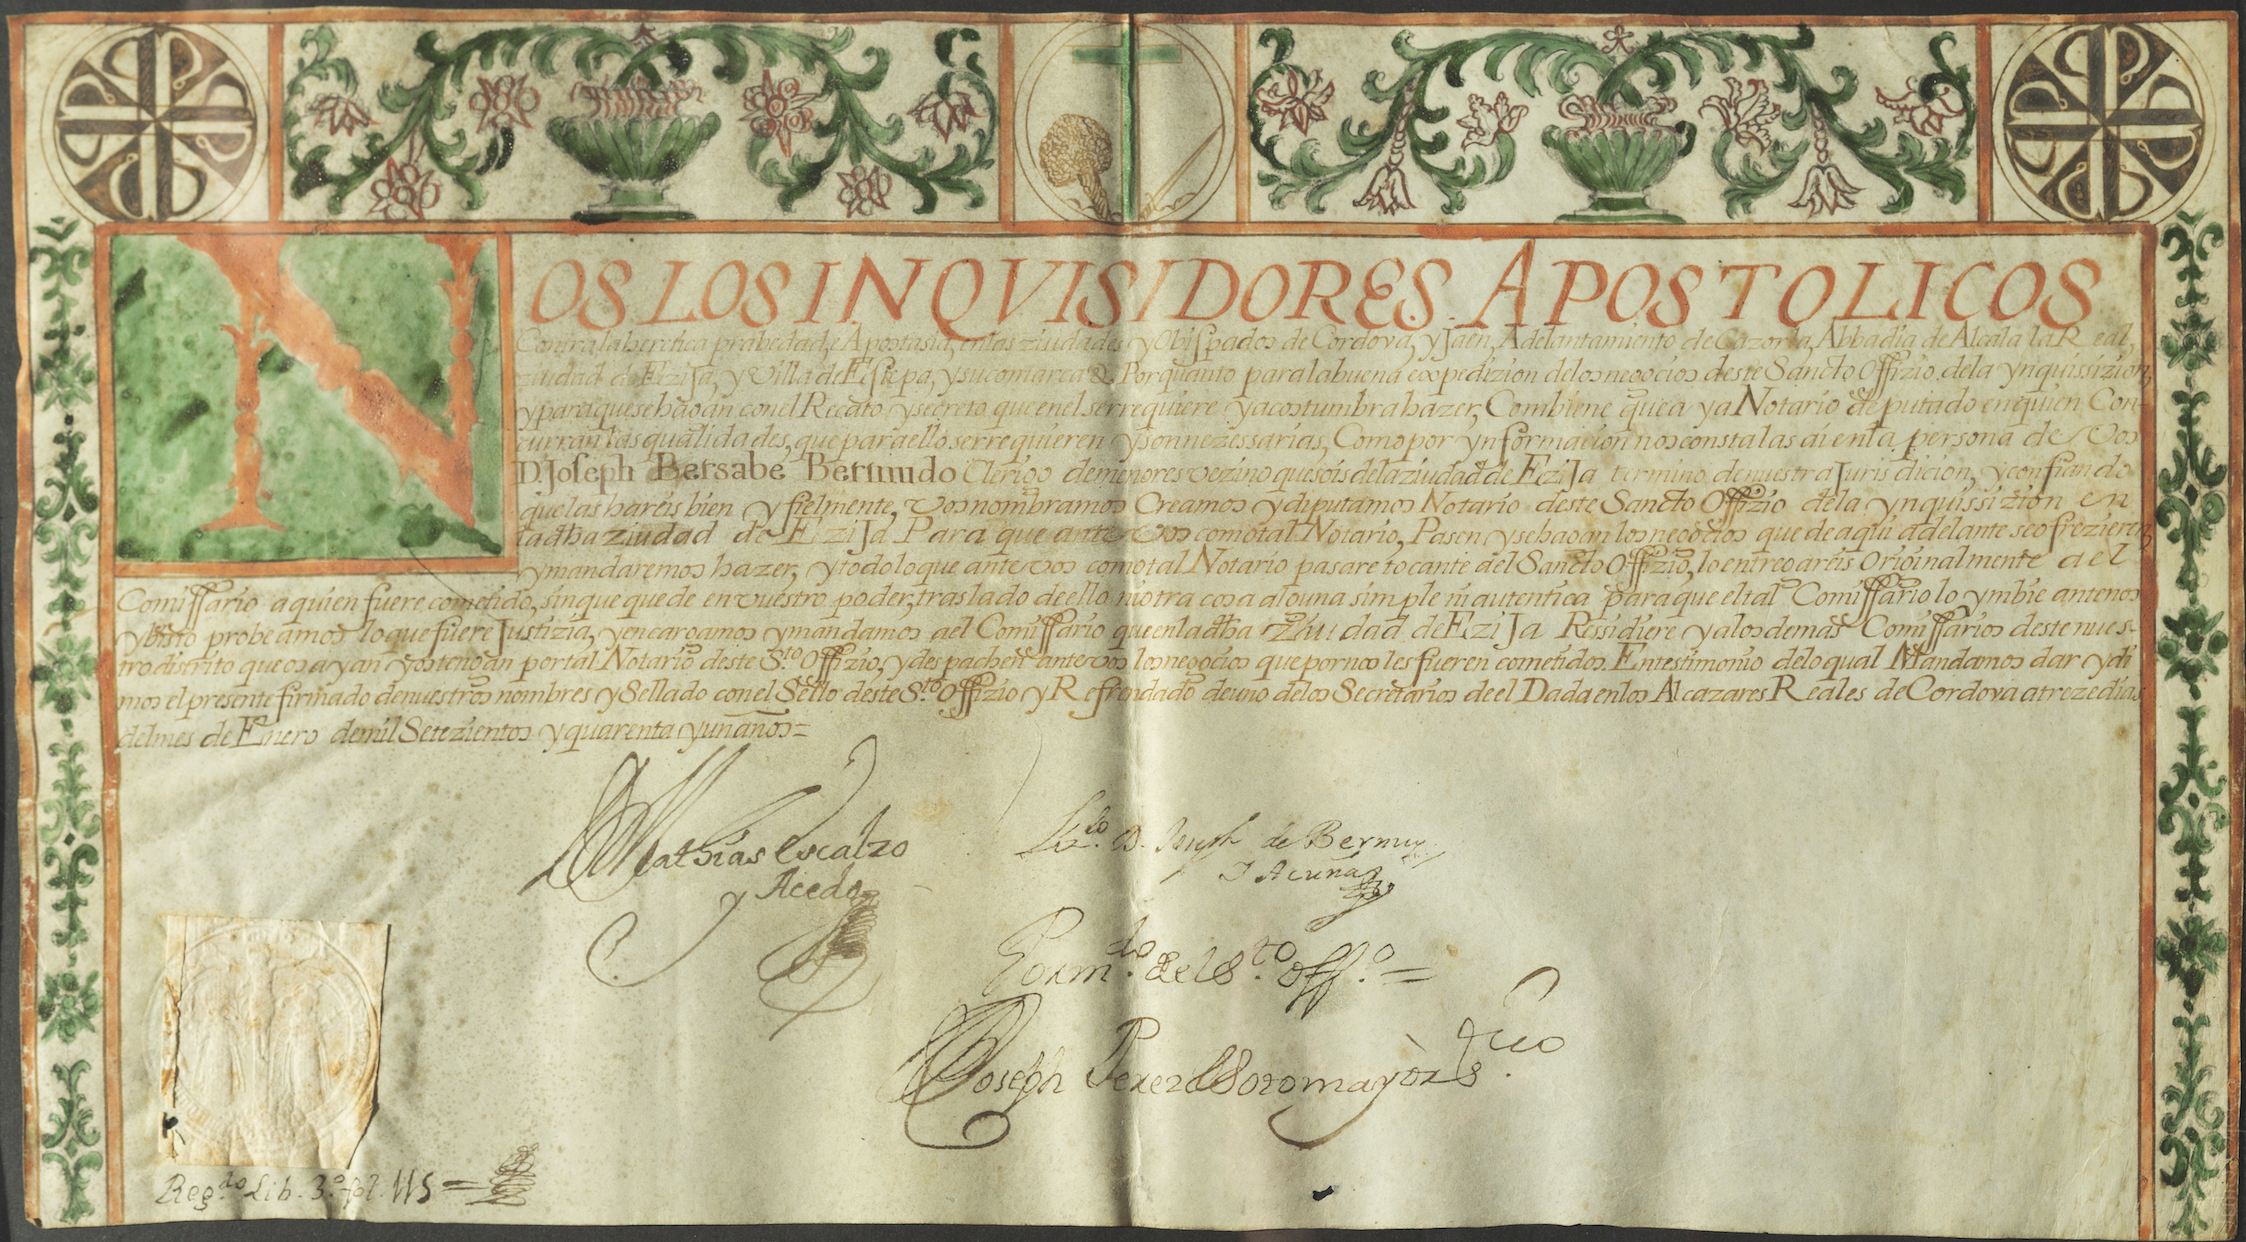 NOS LOS INQVISIDORES APOSTOLICOS
Contra la heretica prabedad, e Apostasia, en las ziudades y Obispados de Cordova, y Jaen, Adelantamiento de Cazorla, Abbadia de Alcala la Real,
ziudad de Ezija, y Villa de Estepa, y su comarca & Porquanto para la buena expedizion de los negocios deste Sancto Offizio de la ynquissizion,
y para que se hagan con el Recato y secreto que en el se rrequiere y acostumbra hazer, Combiene que aya Notario deputado en quien Con-
curran las qualidades, que para ello se rrequieren y son nezessarias, Como por ynformacion nos consta las ai en la persona de vos
D. Joseph Bersabe Bermudo Clerigo de menores vezino que sois de la ziudad de Ezija termino de nuestra Jurisdicion, y confiando
que las hareis bien y fielmente, vos nombramos Creamos y diputamos Notario deste Sancto Offizio de la ynquissizion en
la dha ziudad de Ezija Para que ante vos como tal Notario, Pasen y se hagan los negocios que de aqui adelante se ofrezieren,
y mandaremos hazer, y todo lo que ante vos como tal Notario pasare tocante del Sancto Offizio, lo entregareis originalmente a el
Comissario a quien fuere cometido, sin que quede en vuestro poder, traslado de ello ni otra cosa alguna simple ni autentica para que el tal Comissario lo ymbie ante nos
y bisto probeamos lo que fuere Justizia, y encargamos y mandamos a el Comissario que en la dha Ziudad de Ezija Ressidiere y a los demas Comissarios deste nues-
tro distrito que os ayan y os tengan por tal Notario deste S.to Offizio, y despachen ante vos los negocios que por nos les fueren cometidos. En testimonio de lo qual Mandamos dar y di
mos el presente firmado de nuestros nombres y Sellado con el Sello deste S.to Offizio y Refrendado de uno de los Secretarios de el Dada en los Alcazares Reales de Cordova a treze dias
del mes de Enero de mil Setezientos y quarenta y un años=
Mathias Escalzo
y Acedo
Liz.do D. Joseph de Bermuz
Y Acuña
Por m.do del S.to Off.o =
Joseph Perez de Sotomayor
Reg.do Lib. 3.o fol. 115 =